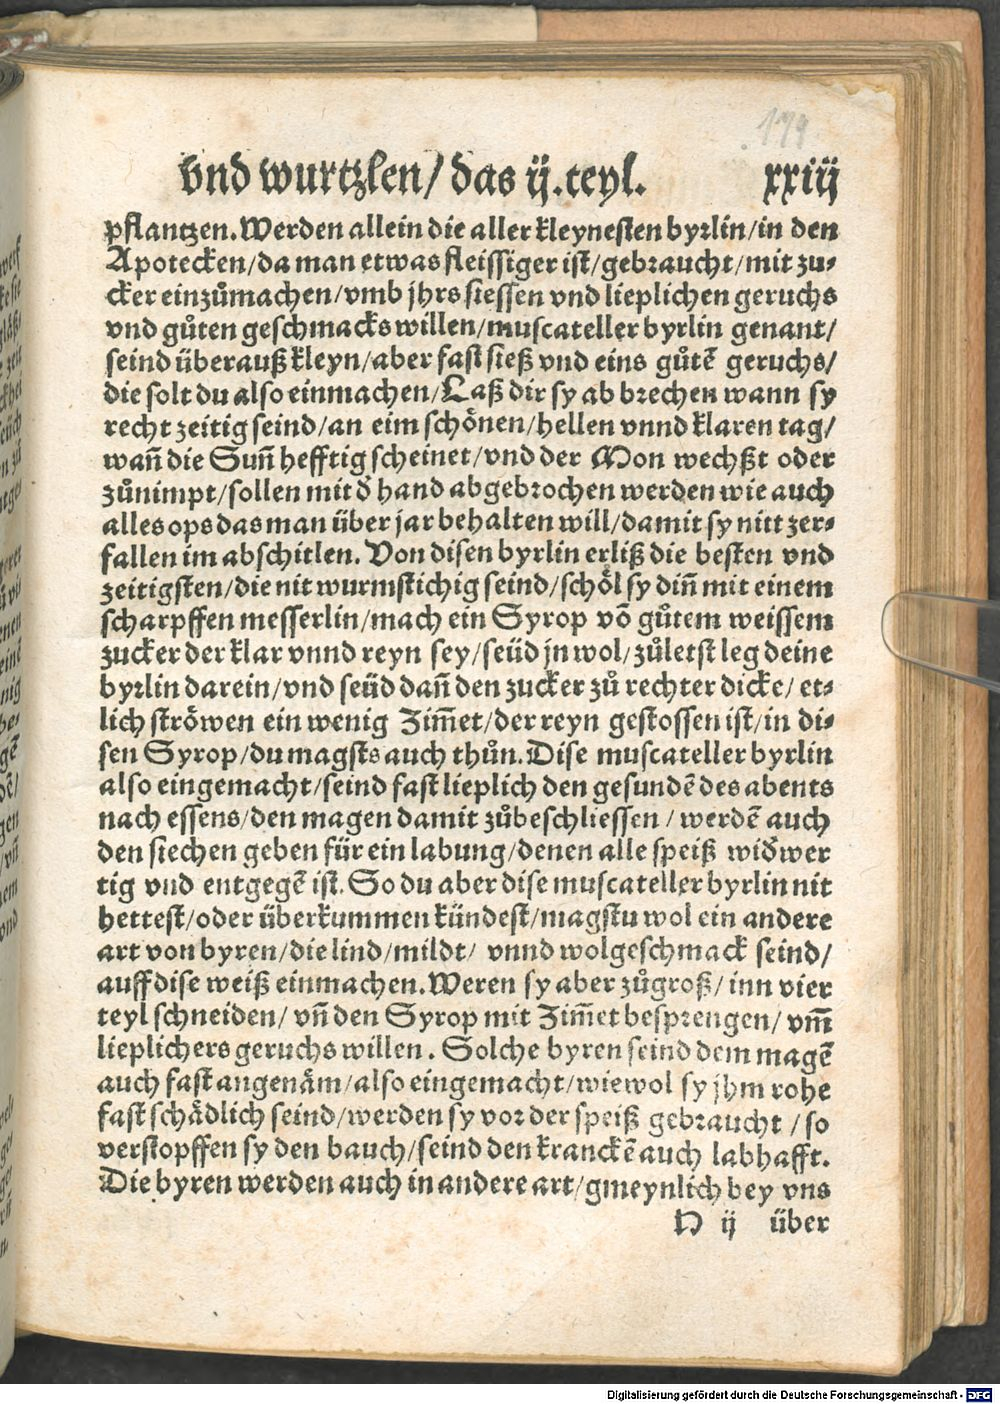 179
vnd wurtzlen/ das ij.teyl. xxiij
pflantzen. Werden allein die aller kleynesten byrlin/ in den
Apotecken/ da man etwas fleissiger ist/ gebraucht/ mit zu-
cker einzůmachen/ vmb jhrs siessen vnd lieplichen geruchs
vnd gůten geschmacks willen/ muscateller byrlin genant/
seind überauß kleyn/ aber fast sieß vnd eins gůtē geruchs/
die solt du also einmachen/ Laß dir sy ab brechen wann sy
recht zeitig seind/ an eim schönen/ hellen vnnd klaren tag/
wañ die Suñ hefftig scheinet/ vnd der Mon wechßt oder
zůnimpt/ sollen mit d̄ hand abgebrochen werden wie auch
alles ops das man über jar behalten will/ damit sy nitt zer-
fallen im abschitlen. Von disen byrlin erliß die besten vnd
zeitigsten/ die nit wurmstichig seind/ schöl sy diñ mit einem
scharpffen messerlin/ mach ein Syrop vō gůtem weissem
zucker der klar vnnd reyn sey/ seüd jn wol/ zůletst leg deine
byrlin darein/ vnd seüd dañ den zucker zů rechter dicke/ et-
lich ströwen ein wenig Zim̄et/ der reyn gestossen ist/ in di-
sen Syrop/ du magsts auch thůn. Dise muscateller byrlin
also eingemacht/ seind fast lieplich den gesundē des abents
nach essens/ den magen damit zůbeschliessen / werdē auch
den siechen geben für ein labung/ denen alle speiß wid̄wer
tig vnd entgegē ist. So du aber dise muscateller byrlin nit
hettest/ oder überkummen kündest/ magstu wol ein andere
art von byren/ die lind/ mildt/ vnnd wolgeschmack seind/
auff dise weiß einmachen. Weren sy aber zůgroß/ inn vier
teyl schneiden/ vñ den Syrop mit Zim̄et besprengen/ vm̄
lieplichers geruchs willen. Solche byren seind dem magē
auch fast angenäm/ also eingemacht/ wiewol sy jhm rohe
fast schädlich seind/ werden sy vor der speiß gebraucht / so
verstopffen sy den bauch/ seind den kranckē auch labhafft.
Die byren werden auch in andere art/ gmeynlich bey vns
H ij über
Digitalisierung gefördert durch die Deutsche Forschungsgemeinschaft - DFG